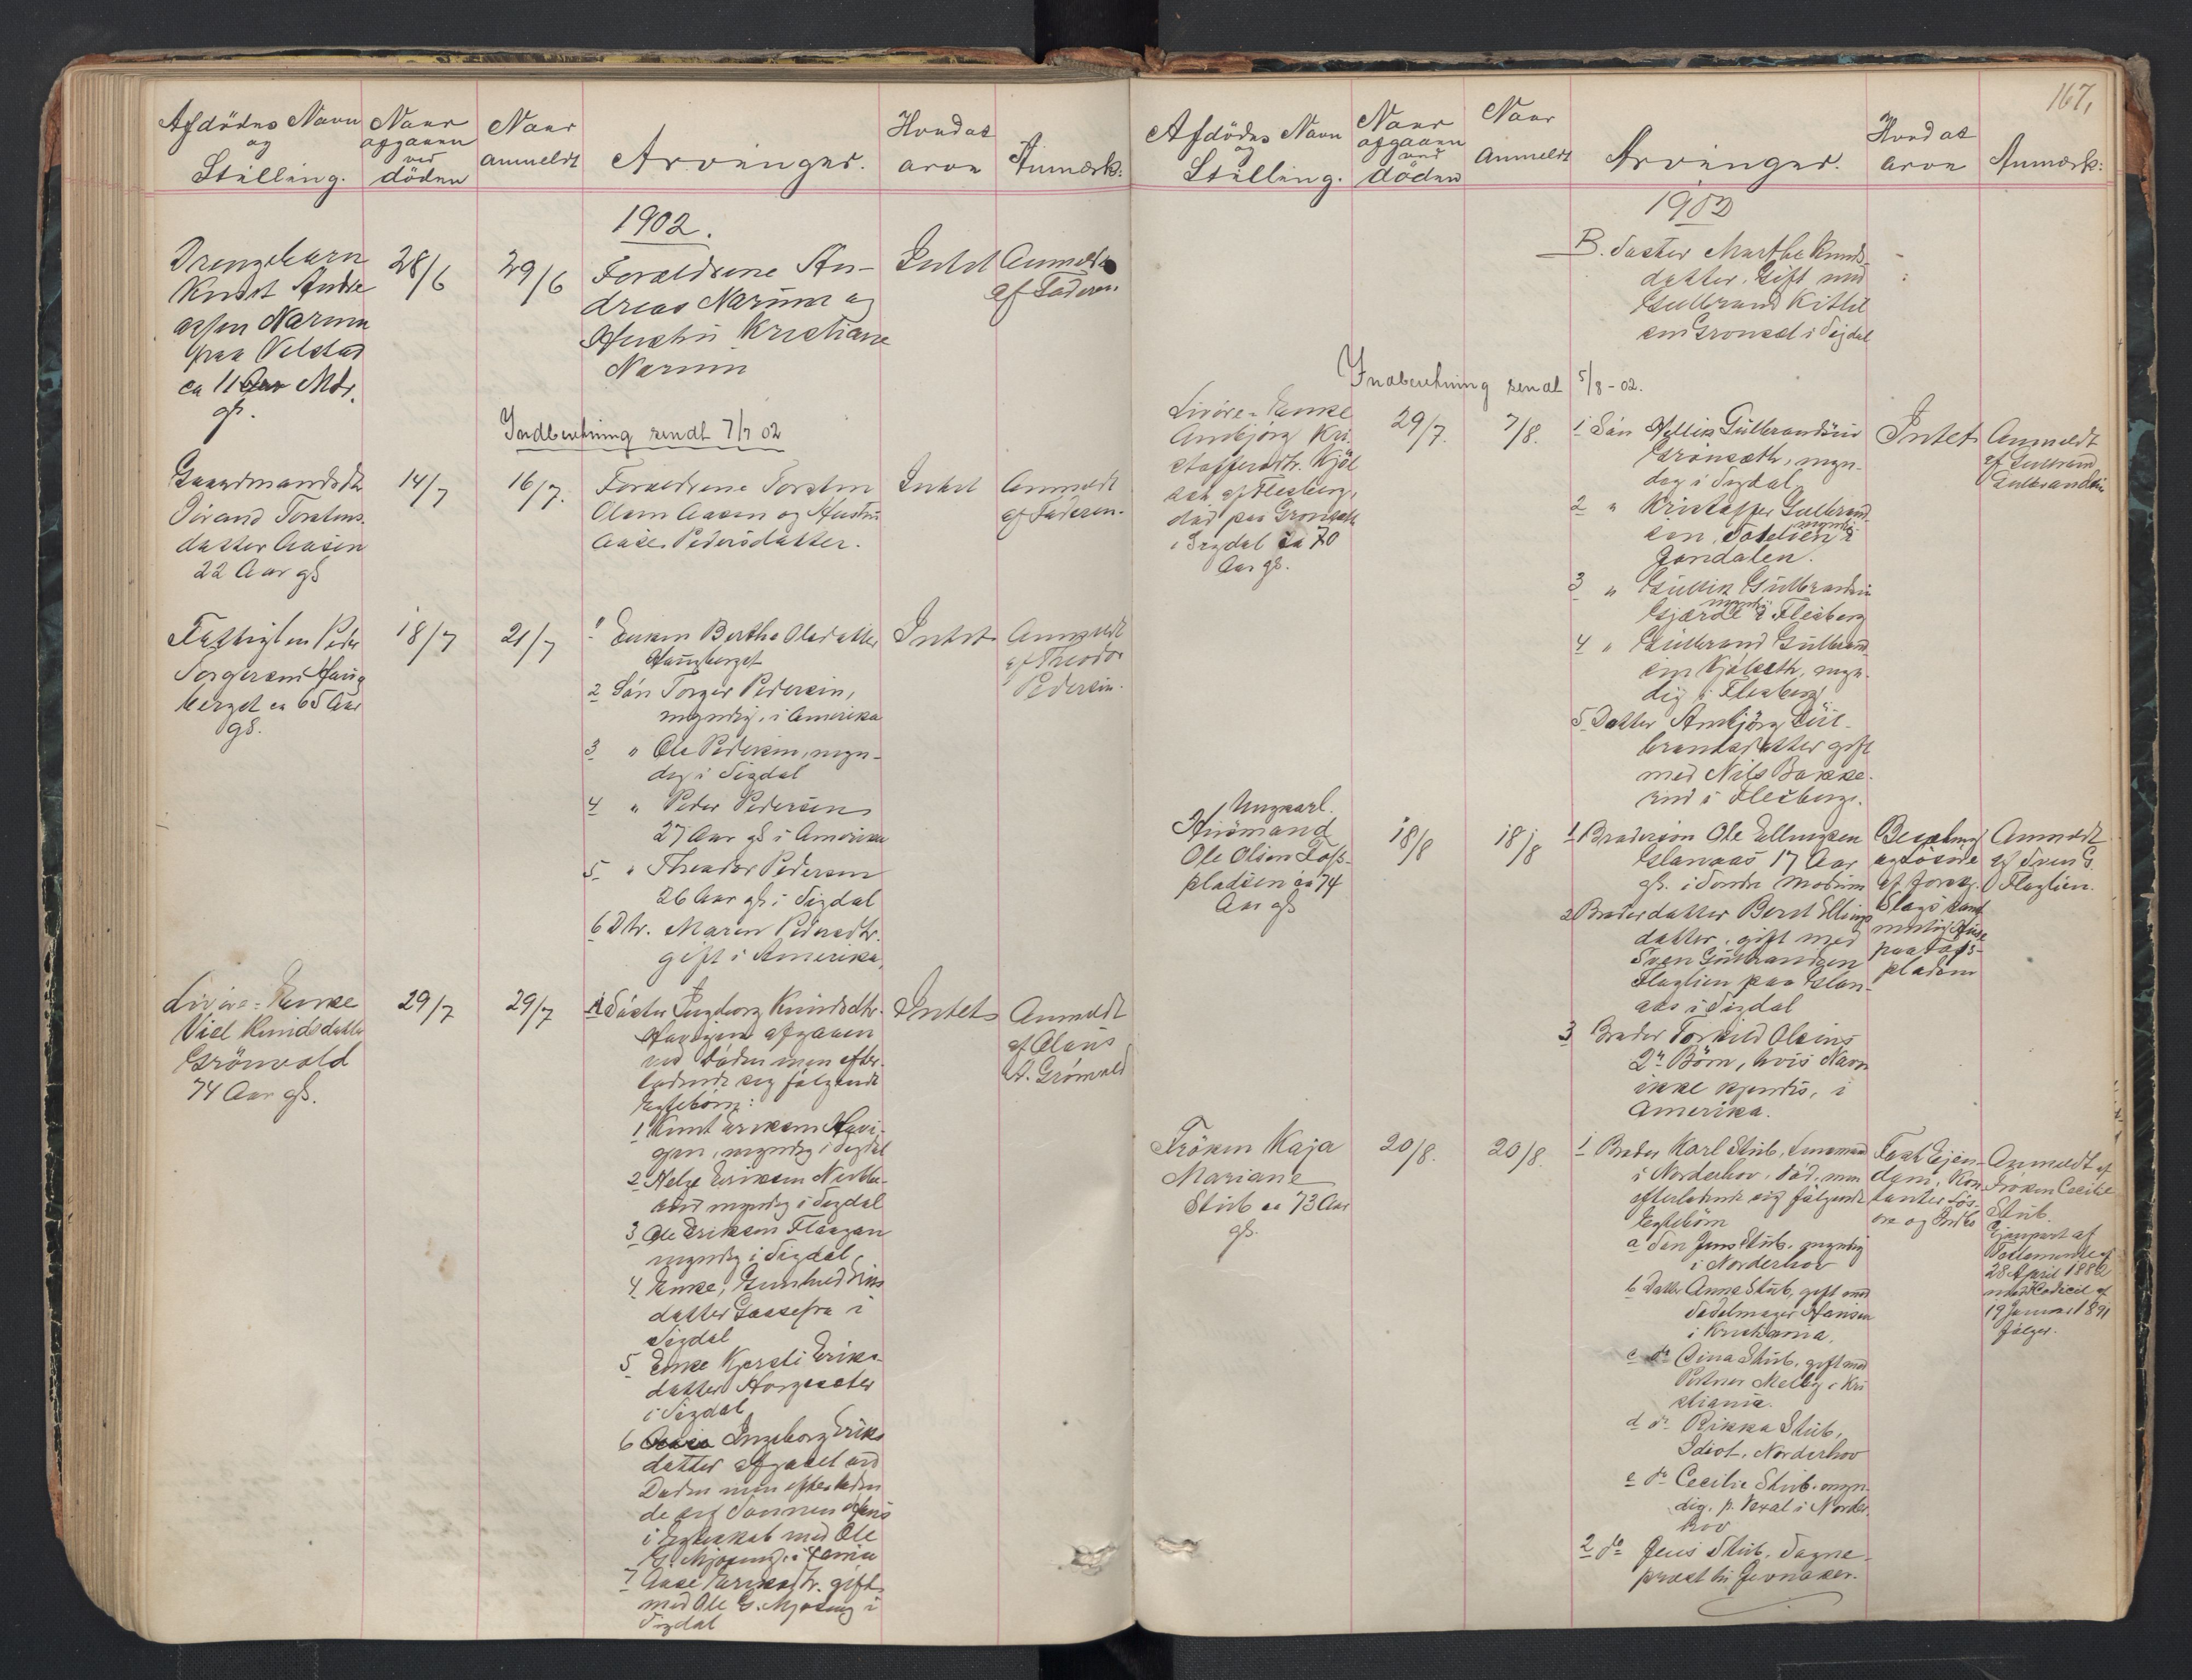 Afdödes Navn
og
Stilling.
Naar
afgaaen
ved
döden
Naar
anmeldt
Arvinger.
Hvad at
arve
Anmærk:
1902.
Drengebarn
Knut Andre
assen Narum
paa Velstad
ca 11 Aar Mdr.
gl.
28/6
29/6
Forældrene An-
dreas Narum og
Hustru Kristiane
Narum
Intet
Anmeldt
af Faderen
Indberetning sendt 7/7 02
Gaardmandsdtr
Torstens-
datter Aasen
22 Aar gl
14/7
16/7.
Forældrene Torsten
Olsen Aasen og Hustru
Aase Pedersdatter.
Intet
Anmeldt
af Faderen.
Fattiglem Peder
Torgersen Haug
berget ca 65 Aar
gl.
18/7
21/7
1 Enken Berthe Olsdatter
Haugberget
2 Sön Torger Pedersen,
myndig, i Amerika
3 " Ole Pedersen, myn-
dig i Sigdal
4 " Peder Pedersen
27 Aar gl i Amerika
5 " Theodor Pedersen
26 Aar gl. i Sigdal
6 Dtr. Maren Pedersdtr.
gift i Amerika,
Intet
Anmeldt
af Theodor
Pedersen.
Livöre-Enke
Knudsdatter
Grönvold
74 Aar gl.
29/7
29/7
A Söster Ingeborg Knudsdtr.
afgaaen
ved Döden men efter-
ladende sig följende
Egtebörn:
1 Knut Eriksen Havi-
gen, myndig i Sigdal
2 Helge Eriksen
myndig i Sigdal
3 Ole Eriksen Flaagan
myndig i Sigdal,
4 Enke, Gunhild Eriks
datter i
Sigdal
5 Enke Kjersti Eriks-
datter
i Sigdal
6 Ingeborg Eriks
datter afgaaet ved
Döden men efterladen
de sig Sönnen Hans
i Egteskab med Ole
G.
7 Aase Eriksdtr. gift
med Ole G. i
Sigdal
Intet
Anmeldt
af Claus
A. Grönvold
167,
Afdödes Navn
og
Stilling.
Naar
afgaaen
ved
döden
Naar
Anmeldt
Arvinger.
Hvad at
arve
Anmærk:
1902
B. Söster Marthe Knuds-
datter, Gift med
Gulbrand Kittil
sen Gronset i Sigdal
Indberetning sendt 5/8-02.
Livöre-Enke
Ambjörg Kri-
stoffersdtr. Kjöl
seth af Flesberg,
död paa Gronseth
i Sigdal ca 70
Aar gl.
29/7.
7/8.
1 Sön Hellik Gulbrandsen
Gronseth, myn-
dig i Sigdal
2 " Kristoffer Gulbrand-
sen, myndig i
Jondalen.
3 " Gullik Gulbrandsen
Gjærde myndig i Flesberg
4 " Gulbrand Gulbrand
sen Kjölseth, myn-
dig i Flesberg
5 Datter Ambjörg Gul-
brandsdatter gift
med Nils Bakke-
rud i Flesberg.
Intet
Anmeldt
af Gulbrand
Gulbrandsen
Ungkarl.
Husmand
Ole Olsen Foss-
pladsen ca 74
Aar gl
18/8
18/8
1 Brodersön Ole Ellingsen
Glanaas 17 Aar
gl. i Söndre Modum
2 Broderdatter Berit Ellings
datter, gift med
Sven Gulbrandsen
Flaglien paa Glan-
aas i Sigdal
3 Broder Torkild Olsens
2de Börn, hvis Navn
ikke kjendes, i
Amerika.
Besætning
og Lösöre
af forskj.
Slags samt
nuværende Huse
paa Foss-
pladsen
Anmeldt
af Sven G.
Flaglien.
Fröken Kaja
Mariane
Stub ca 73 Aar
gl.
20/8.
20/8.
1 Broder Karl Stub, Lensmand
i Norderhov, död, men
efterladende sig følgende
Egtebörn
a Sön Jens Stub, myndig
i Norderhov
b Datter Anna Stub, gift med
Sadelmager Hansen
i Kristiania.
c do Gina Stub, gift med
Portner Melby i Kri
stiania.
d do Rikka Stub,
Idiot, Norderhov
e do Cecilie Stub, myn-
dig, p. t. i Norder-
hov
2 do Jens Stub, Sogne-
prest til Jevnaker.
Fast Ejen-
dom, Kon-
tanter Lös-
öre og Indbo
Anmeldt af
Fröken Cecilie
Stub.
Gjenpart af
Testamente af
28 April 1882
med Kodicil af
19 Januar 1891
fölger.